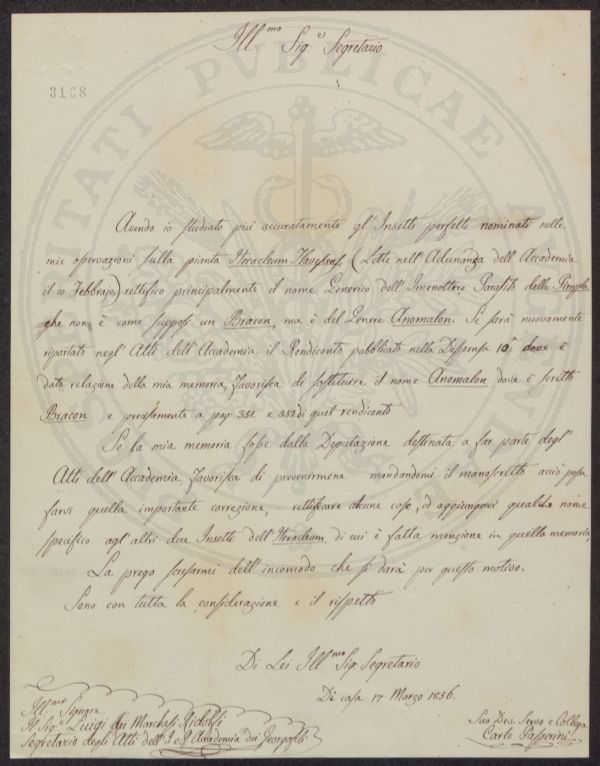 Ill.mo Sig.e Segretario
3108
PROSPERITATI PVBLICAE AVGENDAE
Avendo io studiato più accuratamente gl'Insetti perfetti nominati nelle
mie osservazioni sulla pianta Heracleum (Lette nell'Adunanza dell'Accademia
il 10 Febbrajo) rettifico principalmente il nome Generico dell'Imenottero Parassito della
che non è come supposi un Bracon, ma è del Genere Anomalon. Se sarà nuovamente
riportato negl'Atti dell'Accademia il Rendiconto pubblicato nella Dispensa 10a dove è
data relazione della mia memoria, favorisca di sostituire il nome Anomalon dove è scritto
Bracon e precisamente a pag: 351. e 352 di quel rendiconto
Se la mia memoria fosse dalla Deputazione destinata a far parte degl'
Atti dell'Accademia, favorisca di prevenirmene mandandomi il manoscritto acciò possa
farvi quella importante correzione, rettificare alcune cose, ed aggiungervi qualche nome
specifico agl'altri due Insetti dell'Heracleum di cui è fatta menzione in quella memoria,
La prego scusarmi dell'incomodo che si darà per questo motivo.
Sono con tutta la considerazione e il rispetto
Di Lei Ill.mo Sig. Segretario
Di casa 17 Marzo 1856.
Ill.mo Signore
Il Sig.e Luigi dei Marchesi Ridolfi
Segretario degli Atti dell'I e R Accademia dei Georgofili
Suo Dev. Servo e Collega
Carlo Passerini